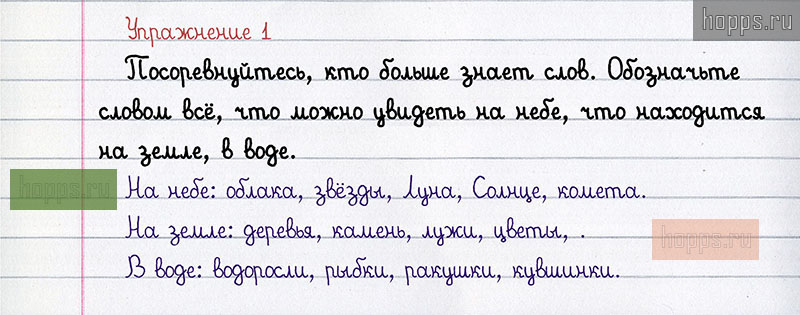 hopps.ru
Упражнение 1
Посоревнуйтесь, кто больше знает слов. Обозначьте
словом всё, что можно увидеть на небе, что находится
на земле, в воде.
hopps.ru
На небе: облака, звёзды, Луна, Солнце, комета.
На земле: деревья, камень, лужи, цветы, .
hopps.ru
В воде: водоросли, рыбки, ракушки, кувшинки.